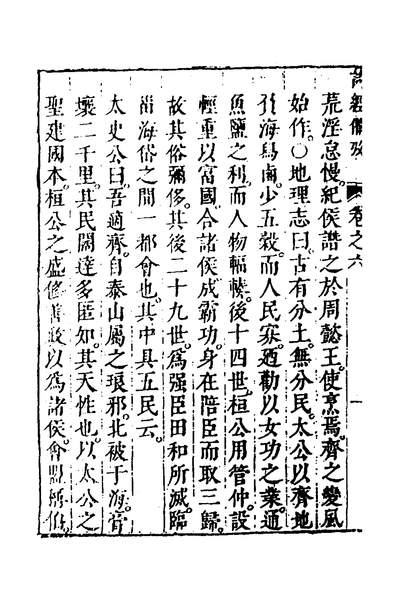 詩經備攷 卷之六 一
荒淫怠慢。紀侯譖之於周懿王。使烹焉。齊之變風
始作。〇地理志曰。古有分土。無分民。太公以齊地
負海舄鹵。少五穀。而人民寡。廼勸以女功之業。通
魚鹽之利。而人物輻輳。後十四世。桓公用管仲。設
輕重以富國。合諸侯成霸功。身在陪臣而取三歸。
故其俗彌侈。其後二十九世。爲强臣田和所滅。臨
菑海岱之間一都會也。其中具五民云。
太史公曰。吾適齊。自泰山屬之琅邪。北被于海。膏
壤二千里。其民闊達多匿知。其天性也。以太公之
聖。建國本。桓公之盛。修善政。以爲諸侯會盟。稱伯。